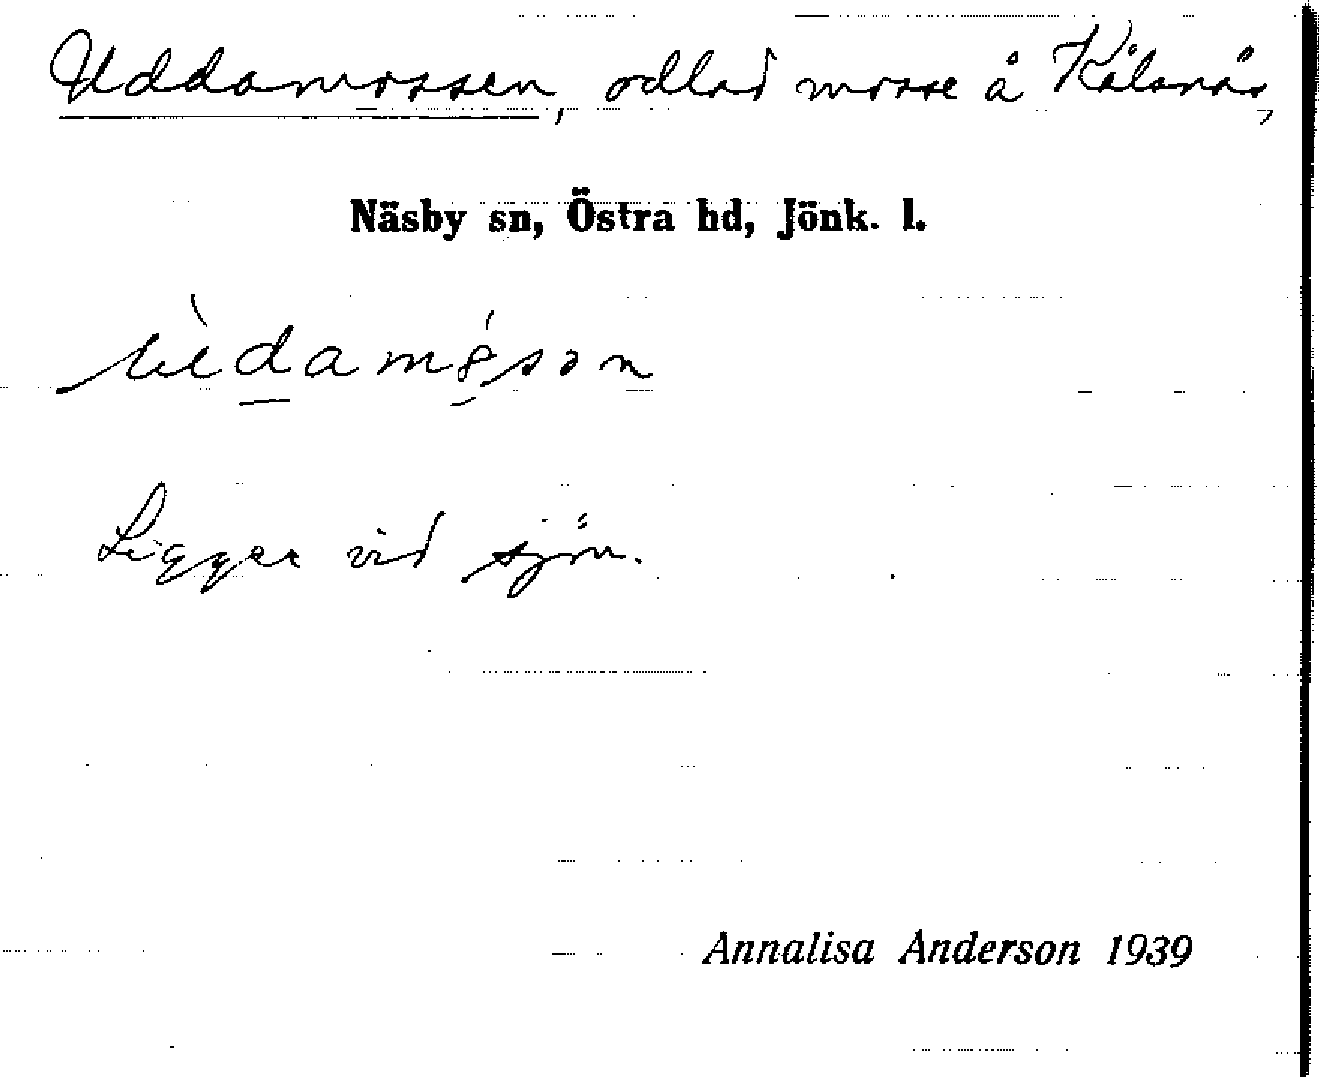 Uddamossen, odlad mosse å Kålsnäs,
Näsby sn, Östra hd, Jönk. l.
Ligger vid sjön.
Annalisa Anderson 1939